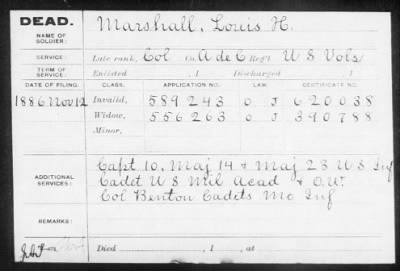 DEAD. Marshall, Louis H.
NAME OF SOLDIER:
SERVICE: Late rank, Col Co. A de C Reg't U S Vols
TERM OF SERVICE: Enlisted , 1 Discharged , 1
DATE OF FILING. CLASS. APPLICATION NO. CERTIFICATE NO.
1886 Nov 12 Invalid, 589243 O J 620038
Widow, 556263 O J 390788
Minor,
ADDITIONAL SERVICES: Capt 10, Maj 14 & Maj 23 U S Inf
Cadet U S Mil Acad & O.W.
Col Benton Cadets Mo Inf
REMARKS:
Died , 1 , at